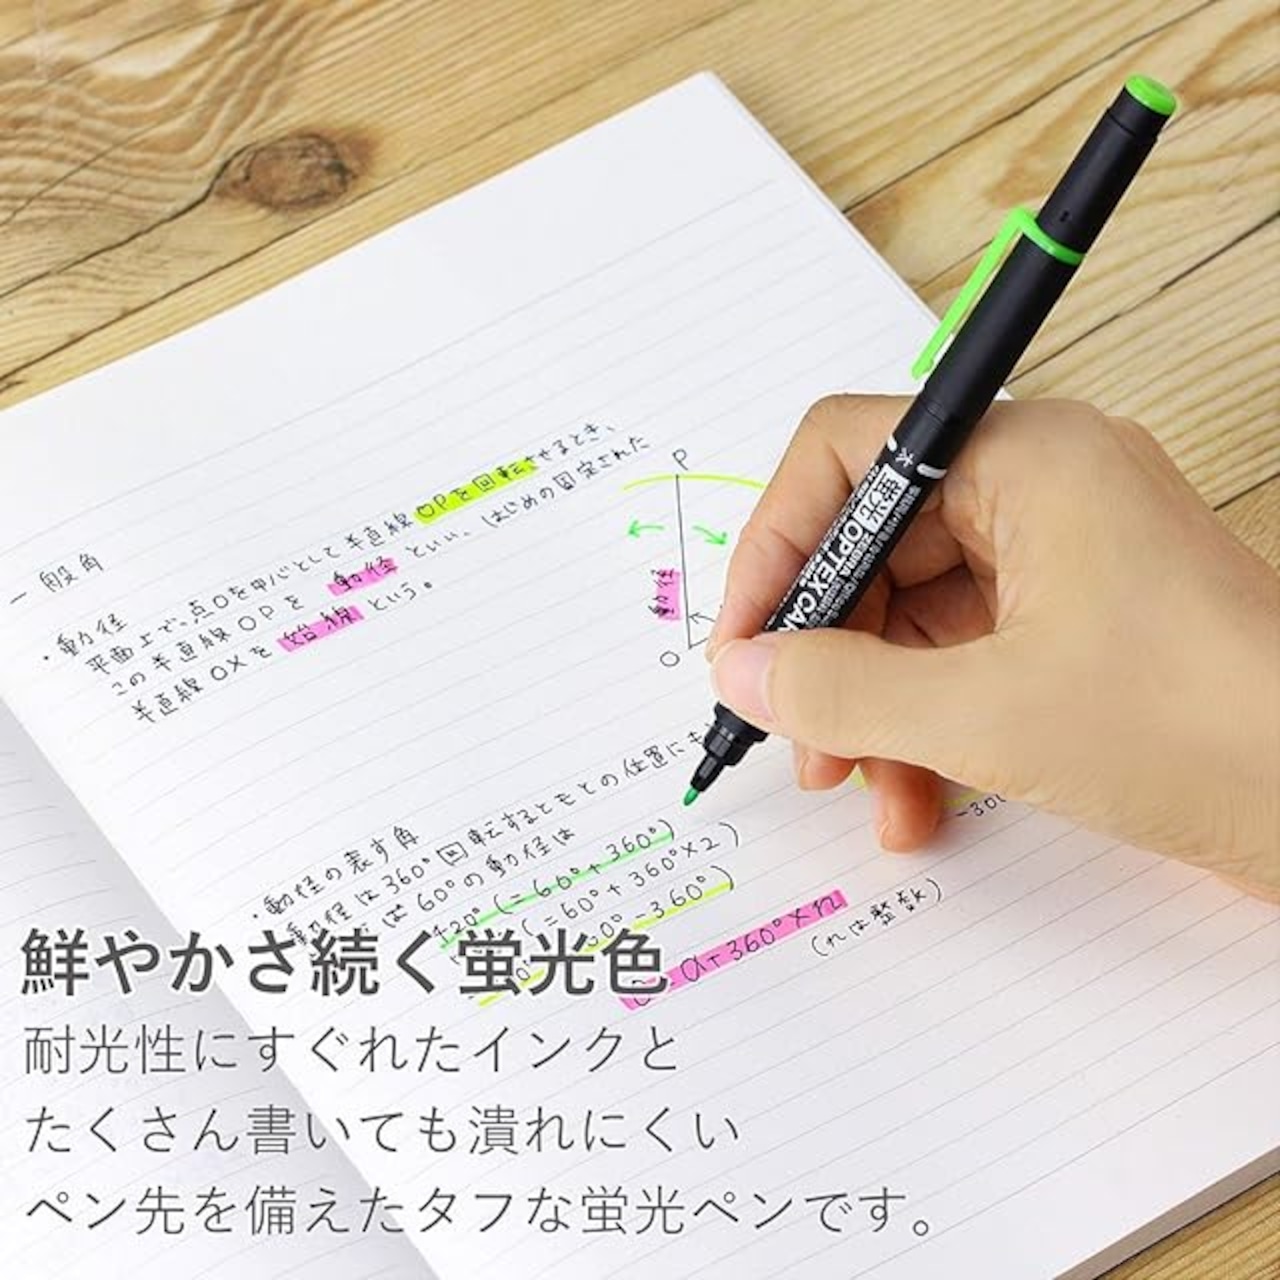 一般角
・動径
平面上で、点Oを中心として半直線OPを回転させるとき、
この半直線OPを動径といい、はじめの固定された
半直線OXを始線という。
P
動径
O
・動径の表す角
動径は360°回転するともとの位置にも
は60°の動径は
420°(=60°+360°)
(=60°+360°×2)
60°-360°)
α+360°×n
(nは整数)
蛍光 ZEBRA OPTEX CAR
太
鮮やかさ続く蛍光色
耐光性にすぐれたインクと
たくさん書いても潰れにくい
ペン先を備えたタフな蛍光ペンです。